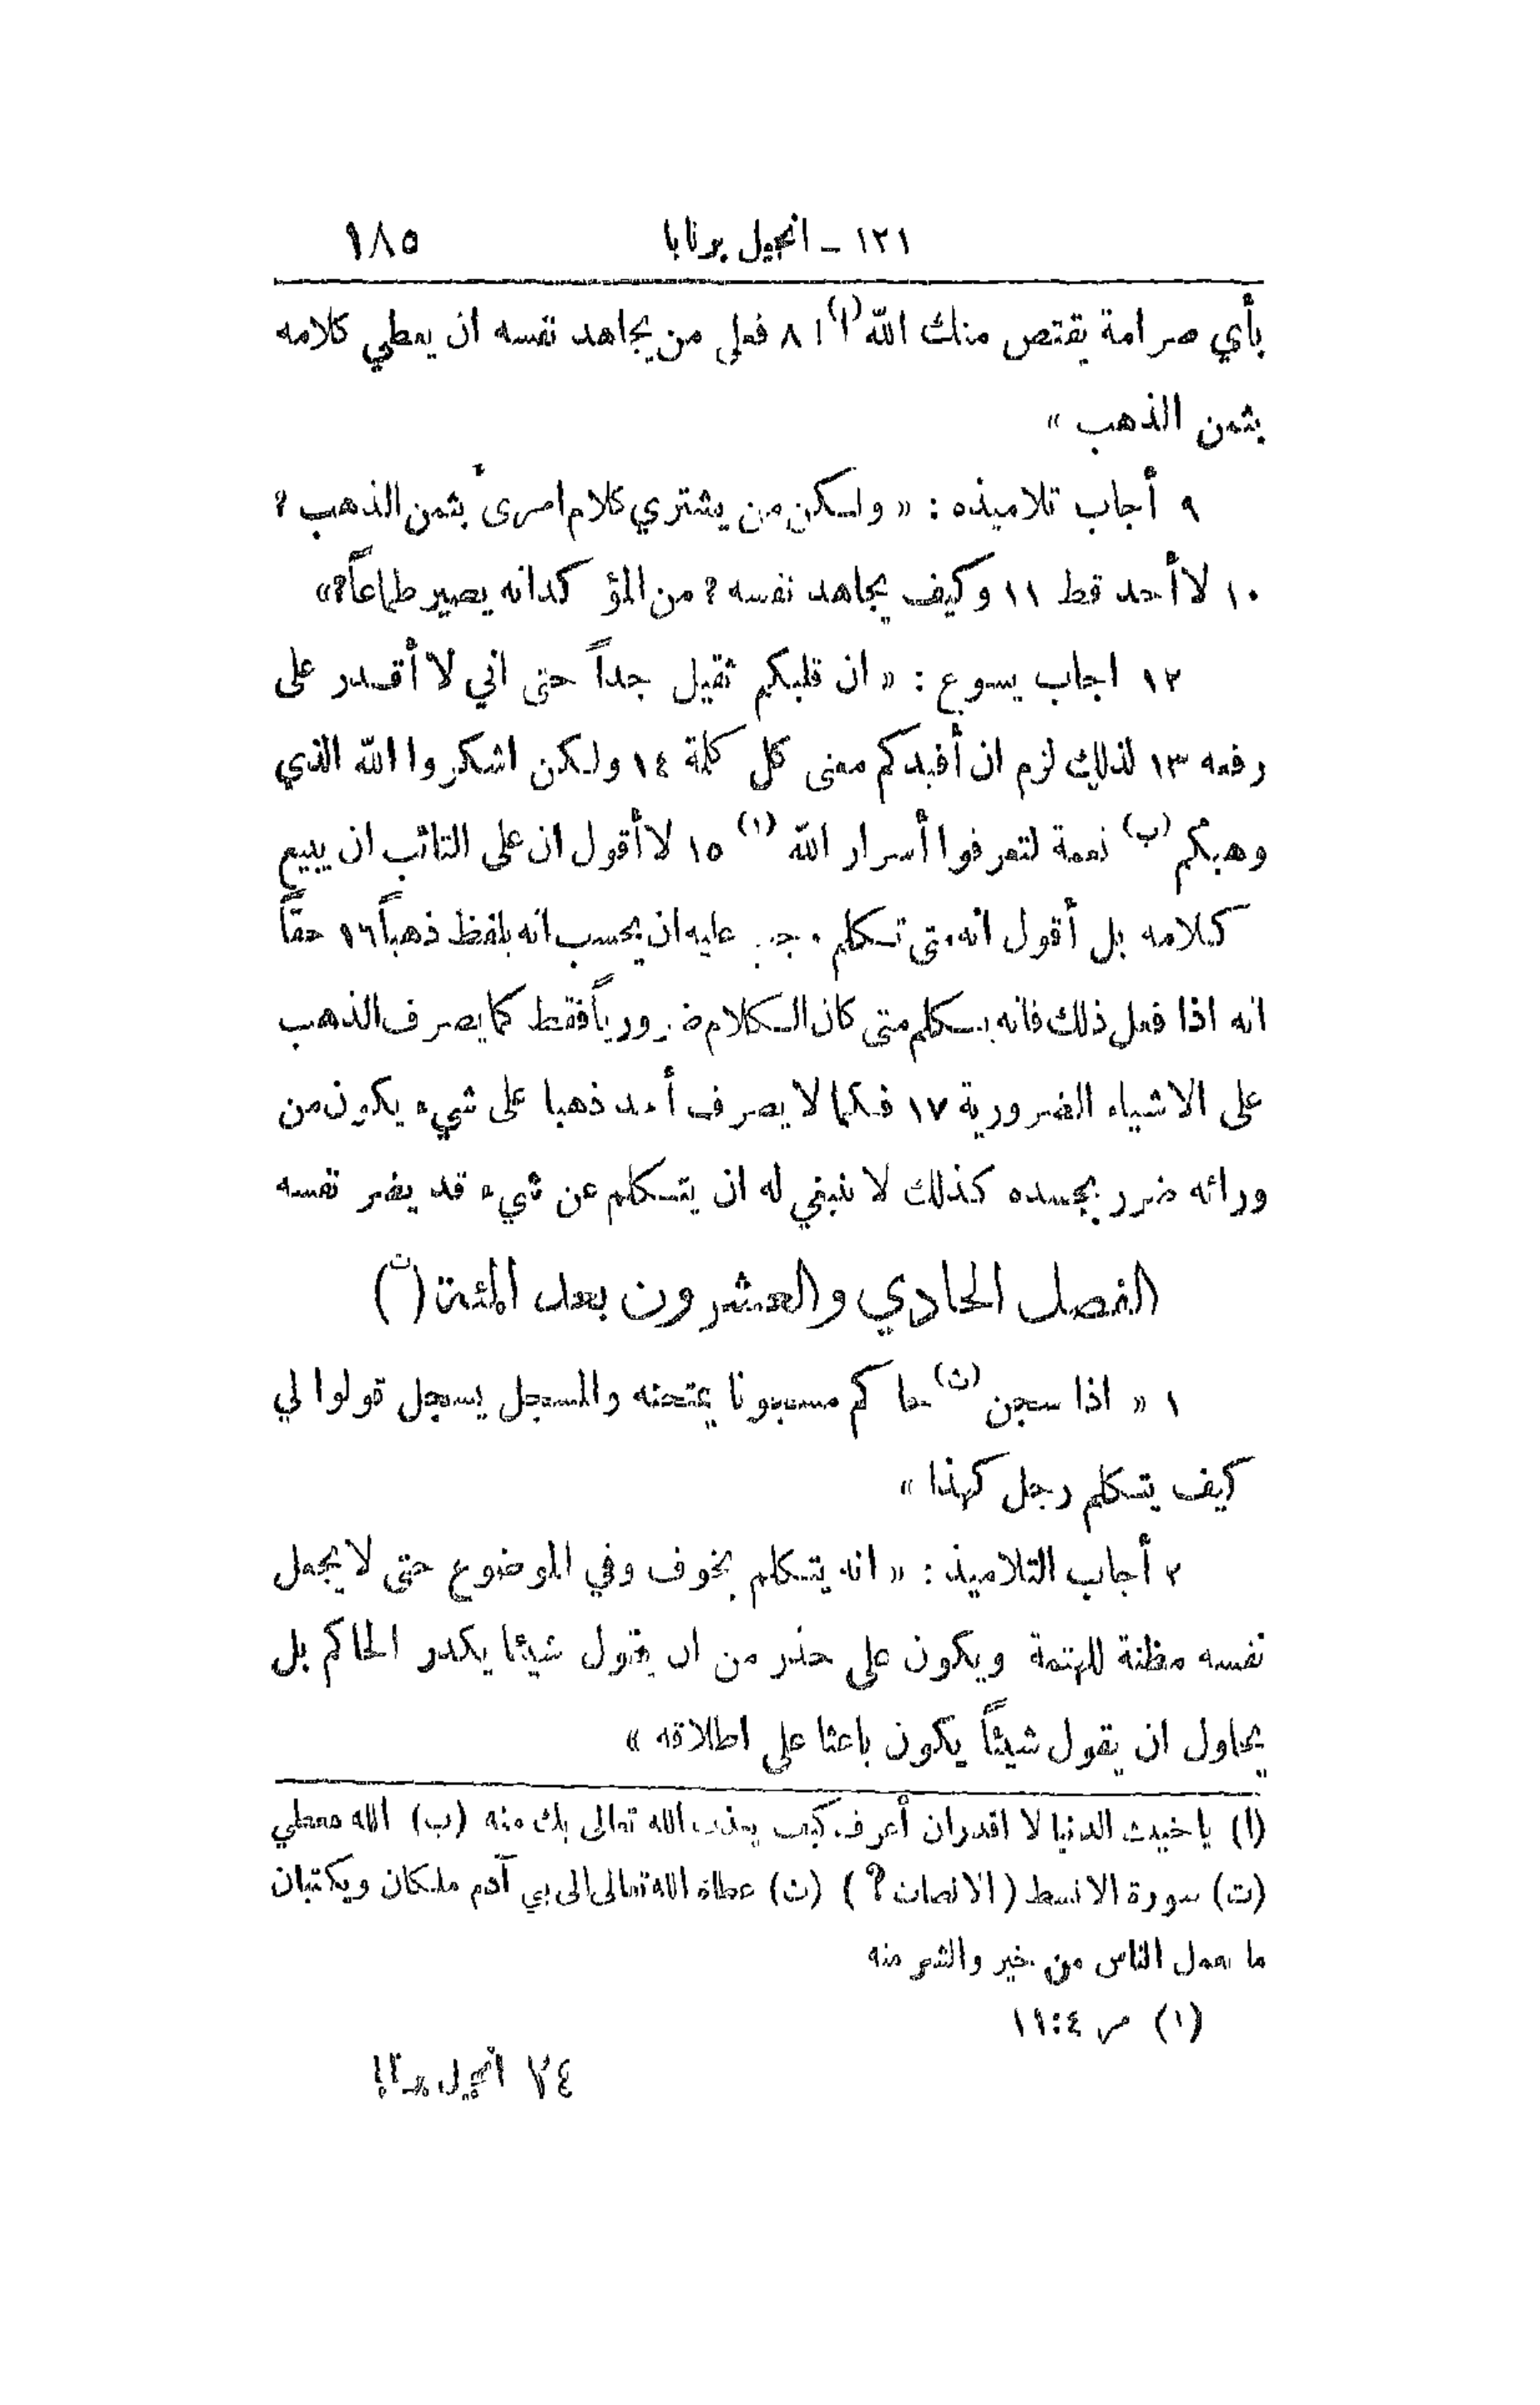 ١٢١ - انجيل برنابا ١٨٥
بأي صرامة يقتص منك الله (ا) ! ٨ فعلى من يجاهد نفسه ان يعطي كلامه
بثمن الذهب »
٩ أجاب تلاميذه : « ولكن من يشتري كلام امرئ بثمن الذهب ?
١٠ لا أحد قط ١١ وكيف يجاهد نفسه ? من المؤكد انه يصير طماعاً ?»
١٢ اجاب يسوع : « ان قلبكم ثقيل جداً حتى اني لا أقدر على
رفعه ١٣ لذلك لزم ان أفيدكم معنى كل كلمة ١٤ ولكن اشكروا الله الذي
وهبكم (ب) نعمة لتعرفوا أسرار الله (١) ١٥ لا أقول ان على التائب ان يبيع
كلامه بل أقول انه متى تكلم وجب عليه ان يحسب انه يلفظ ذهباً ١٦ حقاً
انه اذا فعل ذلك فانه يتكلم متى كان الكلام ضرورياً فقط كما يصرف الذهب
على الاشياء الضرورية ١٧ فكما لا يصرف أحد ذهبا على شيء يكون من
ورائه ضرر بجسده كذلك لا ينبغي له ان يتكلم عن شيء قد يضر نفسه
الفصل الحادي والعشرون بعد المئة (ت)
١ « اذا سجن (ث) حاكم مسجونا يمتحنه والمسجل يسجل قولوا لي
كيف يتكلم رجل كهذا »
٢ أجاب التلاميذ : « انه يتكلم بخوف وفي الموضوع حتى لا يجعل
نفسه مظنة للتهمة ويكون على حذر من ان يقول شيئا يكدر الحاكم بل
يحاول ان يقول شيئاً يكون باعثا على اطلاقه »
(ا) يا خبيث الدنيا لا اقدر ان أعرف كيف يعذب الله تعالى بك منه (ب) الله معطي
(ت) سورة الانسط (الانصات ? ) (ث) عطاة الله تعالى الى بي آدم ملكان ويكتبان
ما يعمل الناس من خير والشر منه
(١) مر ٤:١١
٢٤ انجيل برنابا